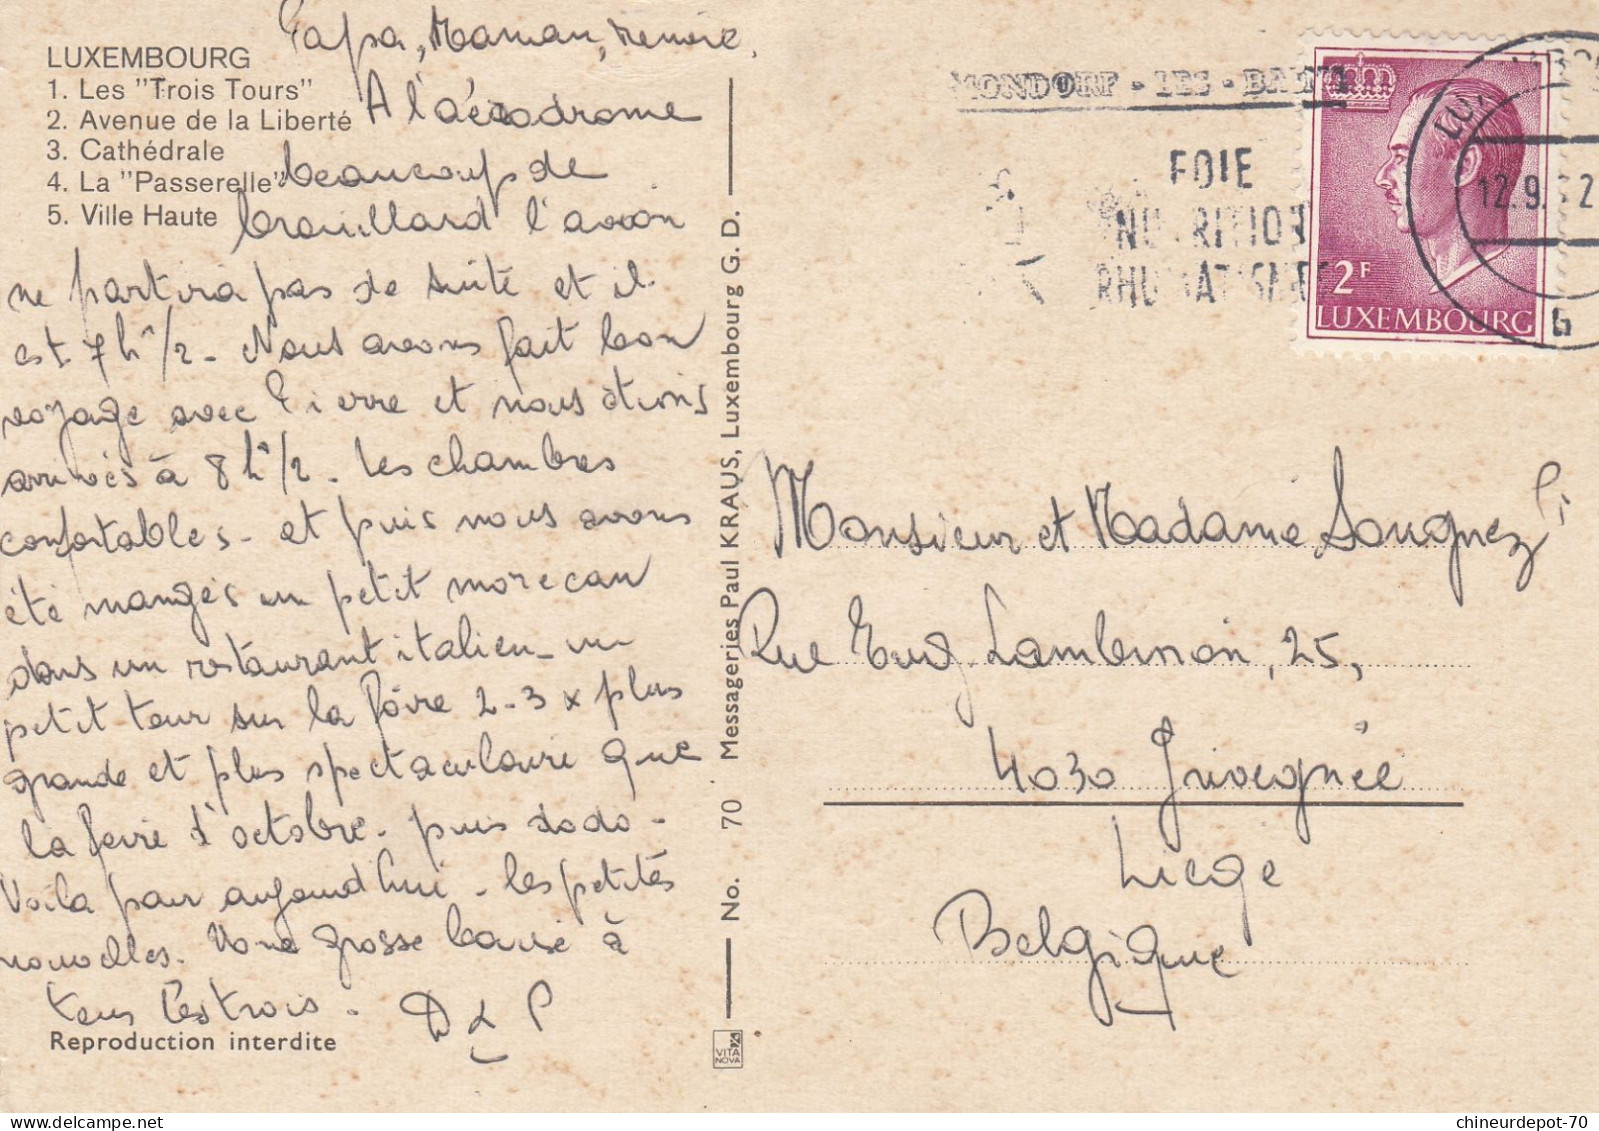 LUXEMBOURG
1. Les "Trois Tours"
2. Avenue de la Liberté
3. Cathédrale
4. La "Passerelle"
5. Ville Haute
Papa, Maman,
A l'aérodrome
beaucoup de
brouillard l'avion
ne partira pas de suite et il
est 7 h 1/2 - Nous avons fait bon
voyage avec Pierre et nous étions
arrivés à 8 h 1/2 - Les chambres
confortables - et puis nous avons
été mangés un petit morecan
dans un restaurant italien - un
petit tour sur la foire 2-3 x plus
grande et plus spectaculaire que
la foire d'octobre - puis dodo -
Voila pour aujourd'hui - les petites
nouvelles. Une grosse baise à
tous les trois - D & P
Reproduction interdite
No. 70 Messageries Paul KRAUS, Luxembourg G. D.
VITA
NOVA
MONDORF - LES - BAINS
FOIE
NUTRITION
12.9. 2
b
2F
LUXEMBOURG
Monsieur et Madame Sougnez
Rue Eug. Lambinon, 25,
4030 Grivegnée
Liege
Belgique
chineurdepot-70